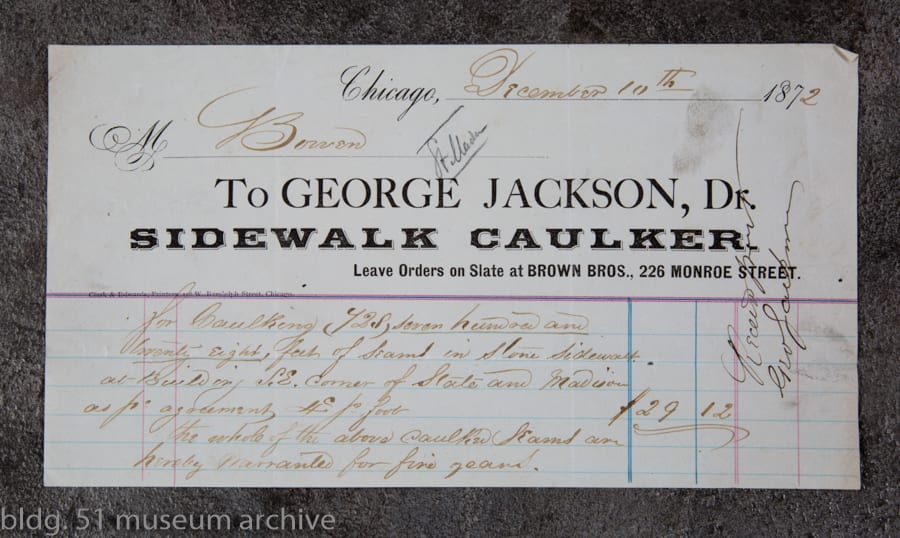 Chicago, December 10th 1872
M Bowen
St. & Mad
To GEORGE JACKSON, Dr.
SIDEWALK CAULKER.
Leave Orders on Slate at BROWN BROS., 226 MONROE STREET.
Clark & Edwards, Printers, W. Randolph Street, Chicago.
for Caulking 728, seven hundred and
twenty eight, feet of seams in Stone Sidewalk
at Building S.E. corner of State and Madison
as pr agreement, 4c pr foot $29 12
the whole of the above caulked seams are
hereby warranted for five years.
Received payment
Geo Jackson
bldg. 51 museum archive